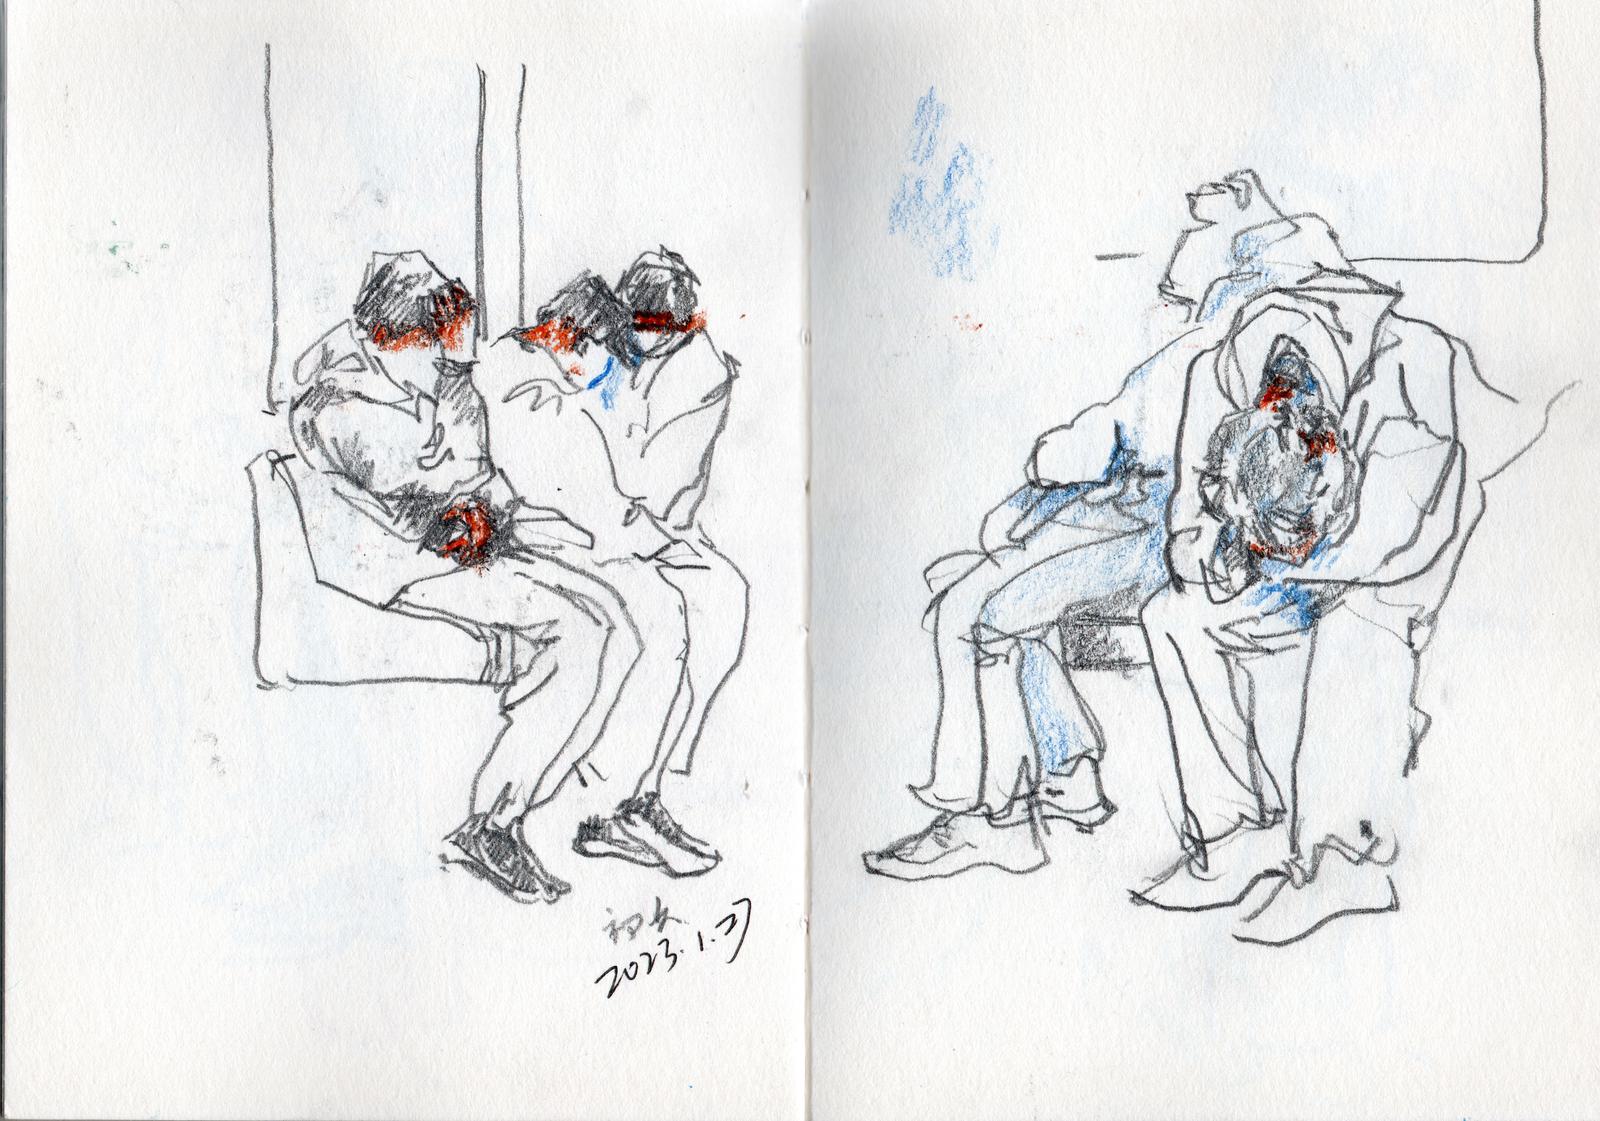 初六
2023.1.27